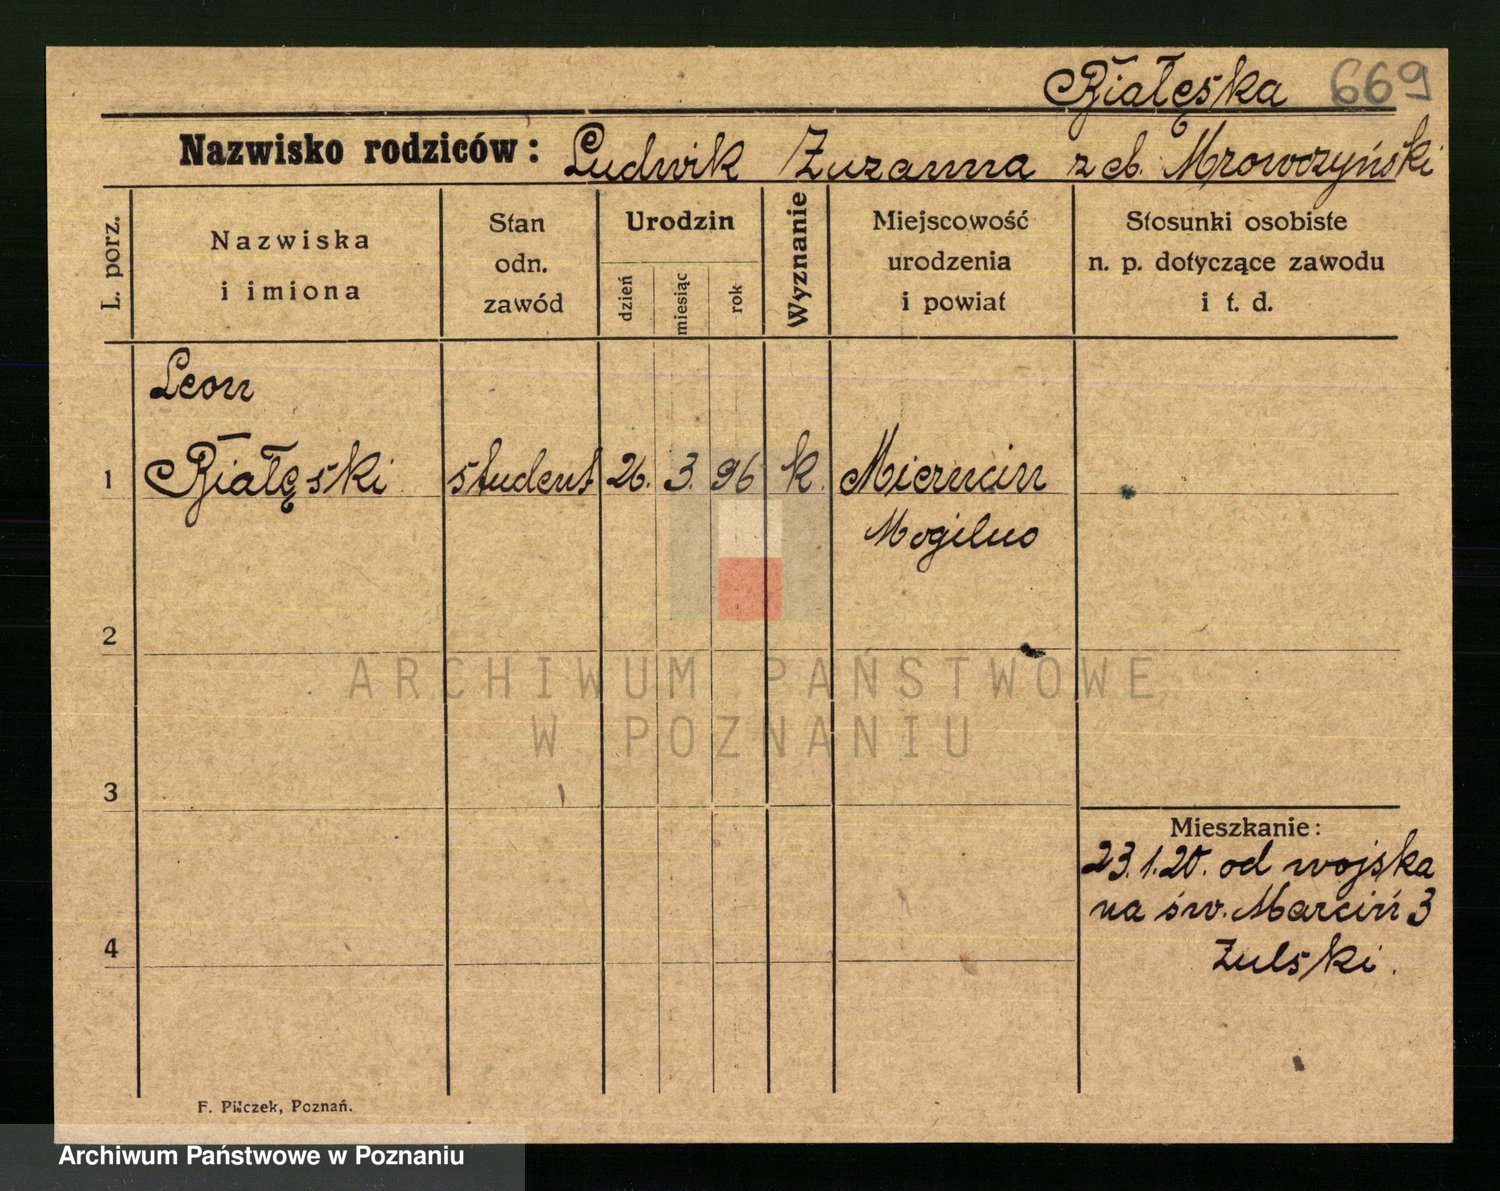 Białęska 669
Nazwisko rodziców: Ludwik Zuzanna z eb. Mrowczyński
L. porz.
Nazwiska
i imiona
Stan
odn.
zawód
Urodzin
dzień
miesiąc
rok
Wyznanie
Miejscowość
urodzenia
i powiat
Stosunki osobiste
n. p. dotyczące zawodu
i t. d.
Leon
1 Białęski student 26. 3. 96 k. Mierncin
Mogilno
2
ARCHIWUM PAŃSTWOWE
W POZNANIU
3
Mieszkanie:
23.1.20. od wojska
na św. Marciń 3
4
Zulski.
F. Pilczek, Poznań.
Archiwum Państwowe w Poznaniu